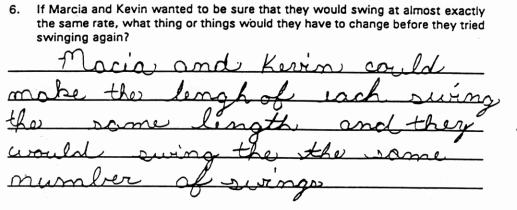 6. If Marcia and Kevin wanted to be sure that they would swing at almost exactly
the same rate, what thing or things would they have to change before they tried
swinging again?
Macia and Kevin could
make the lengh of each swing
the same length and they
would swing the the same
number of swings